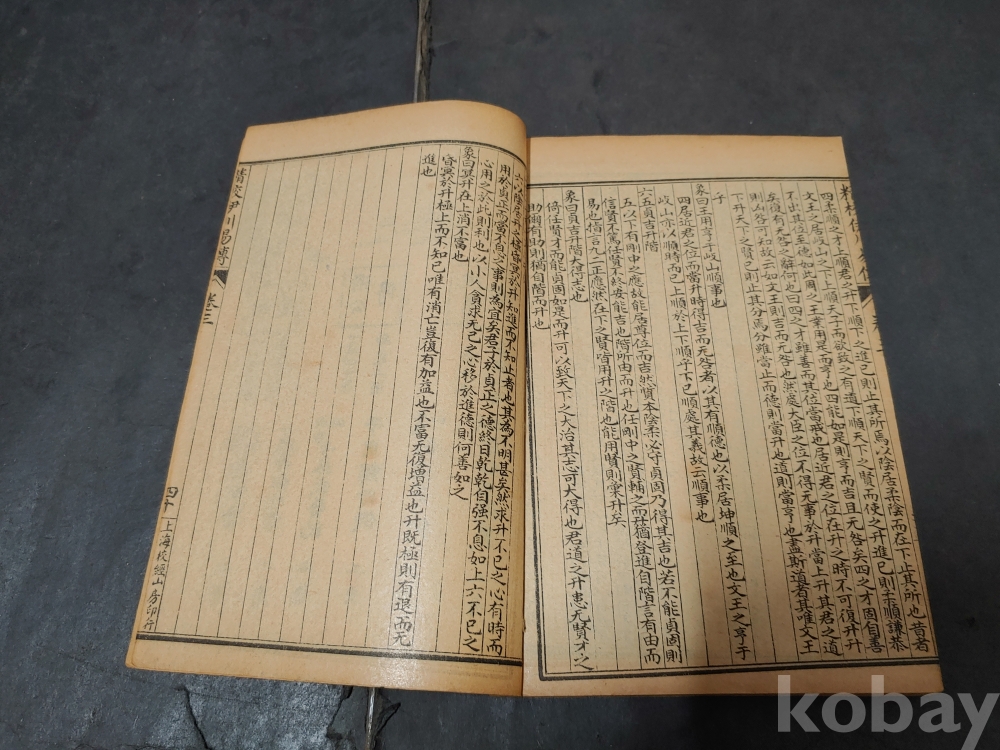 四本順之才上順君之升下順下之進己則止其所焉以陰居柔陰而在下止其所也昔者
文王之居岐山之下上順天子而欲致之有道下順天下之賢而使之升進己則柔順謙恭
不出其位至德如此周之王業用是而亨也四能如是則亨而吉且无咎矣四之才固自善
矣復有无咎之辭何也曰四之才雖善而其位當戒也居近君之位在升之時不可復升升
則凶咎可知故云如文王則吉而无咎也然處大臣之位不得无事於升當上升其君之道
下升天下之賢己則止其分焉分雖當止而德則當升也道則當亨也盡斯道者其唯文王
乎
象曰王用亨于岐山順事也
四居近君之位而當升時得吉而无咎者以其有順德也以柔居坤順之至也文王之亨于
岐山亦以順時而已上順於上下順乎下己順處其義故云順事也
六五貞吉升階
五以下有剛中之應故能居尊位而吉然質本陰柔必守貞固乃得其吉也若不能貞固則
信賢不篤任賢不終安能吉也階所由而升也任剛中之賢輔之而升猶登進自階言有由而
易也指言九二正應然在下之賢皆用升之階也能用賢則彙升矣
象曰貞吉升階大得志也
倚任賢才而能貞固如是而升可以致天下之大治其志可大得也君道之升患无賢才之
助爾有助則猶自階而升也
六以陰居升之極昏冥於升知進而不知止者也其為不明甚矣然求升不已之心有時而
用於貞正而當不息之事則為宜矣君子於貞正之德終日乾乾自强不息如上六不已之
心用之於此則利也以小人貪求无已之心移於進德則何善如之
象曰冥升在上消不富也
昏冥於升極上而不知已唯有消亡豈復有加益也不富无復增益也升既極則有退而无
進也
伊川易傳
卷三
四十
上海校經山房印行
kobay